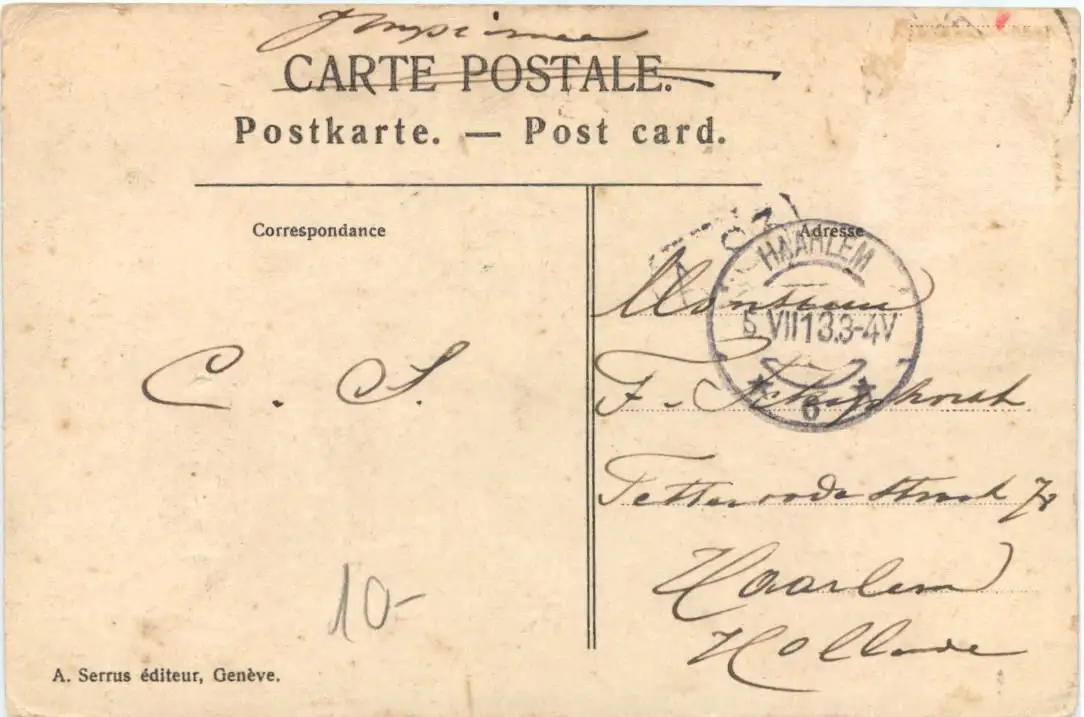 Imprimée
CARTE POSTALE.
Postkarte. — Post card.
Correspondance
Adresse
HAARLEM
5 VII 13.3-4V
6
Monsieur
F.
Tetterodestraat 78
Haarlem
Hollande
C. S.
10-
A. Serrus éditeur, Genève.